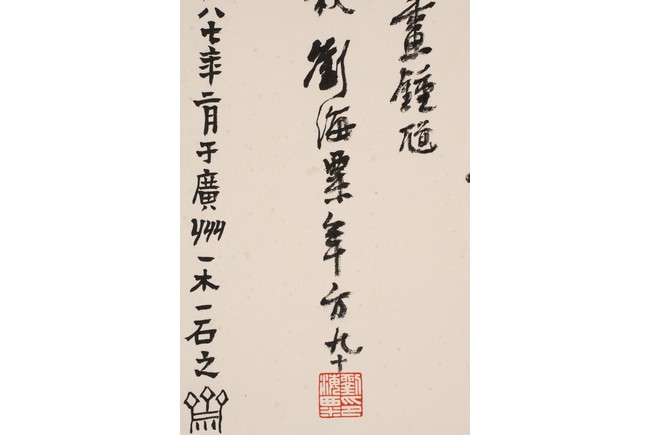 畫鍾馗
劉海粟年方九十
劉印海粟
八七年二月于廣州一木一石之